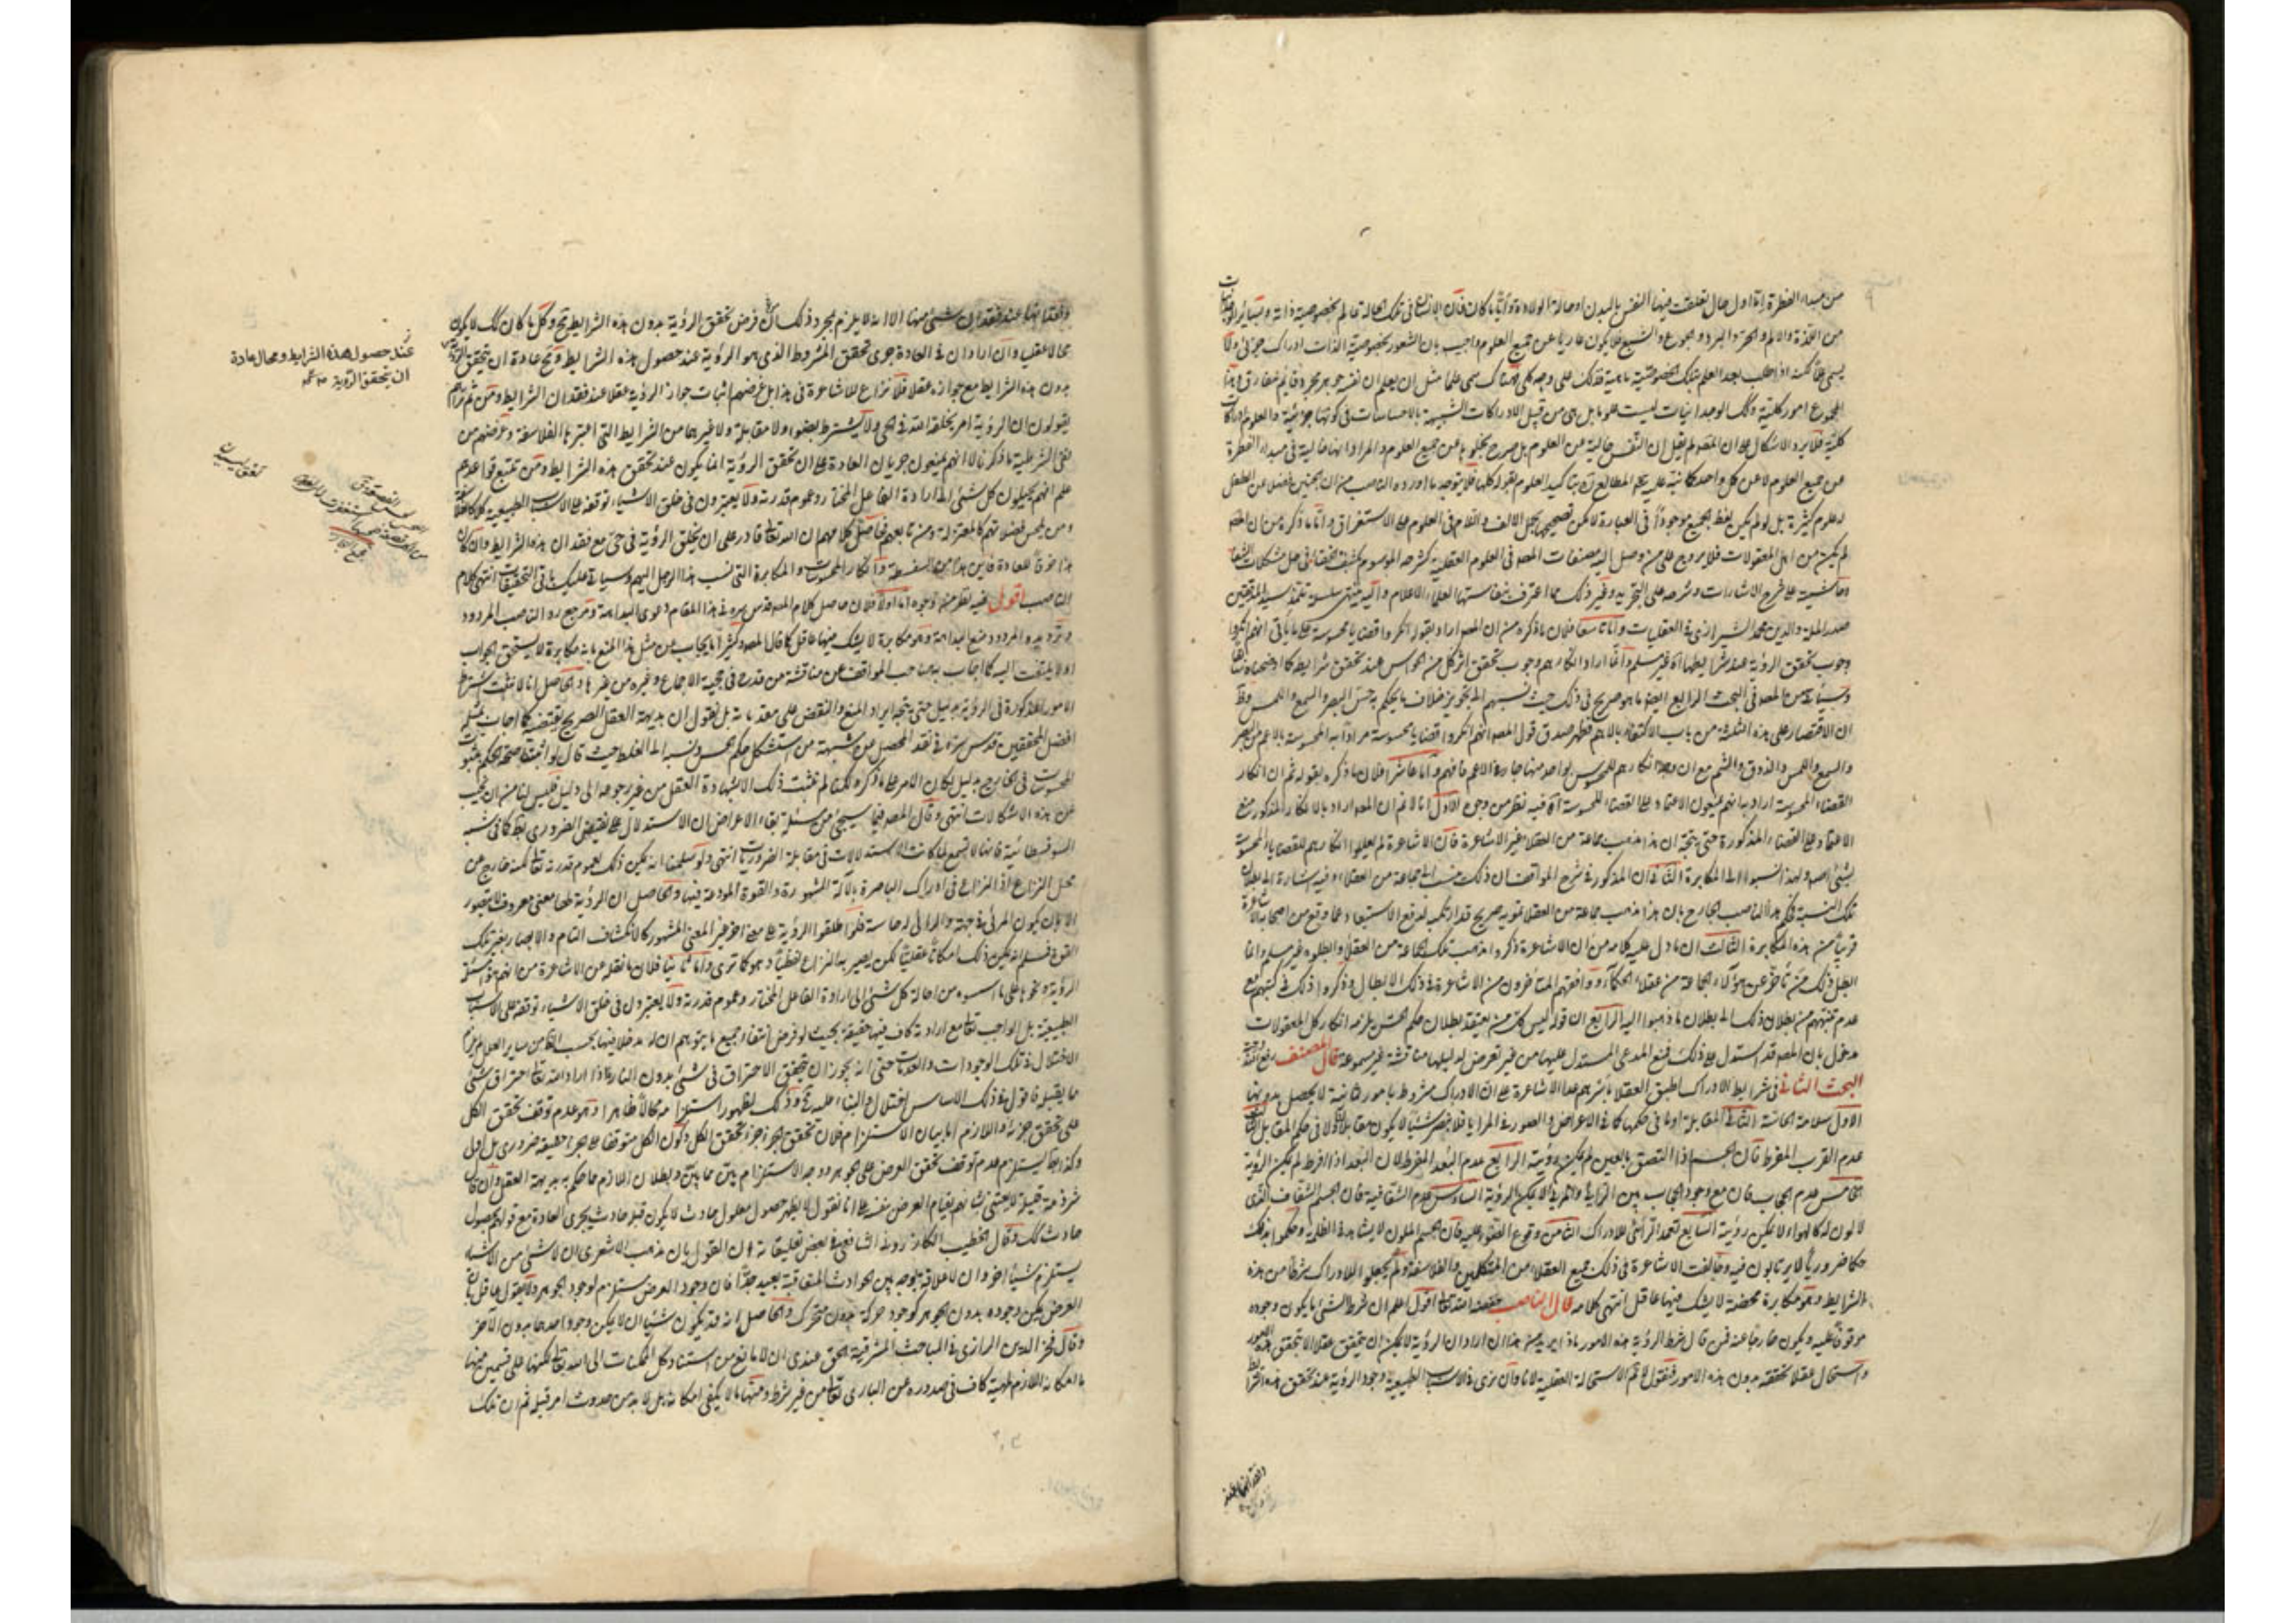 من مبدء الفطرة اة اول حال تعلقت فيها النفس بالبدن او حالة الولادة وايّاً ما كان فان الانسان في تلك الحالة عالم بخصوصية ذاته وبسائر الوجدانيات
من اللذة والالم والحر والبرد والجوع والشبع فلا يكون عاريا عن جميع العلوم واجيب بان الشعور بخصوصية الذات ادراك جزئي ولا
المجموع امور كلية وتلك الوجدانيات ليست علوما بل هي من قبيل الادراكات الشبيهة بالاحساسات في كونها جزئية والعلوم ادراكات
كلية فلا يرد الاشكال لان المصنف لم يقل ان النفس خالية عن العلوم بل صرح بخلوها عن جميع العلوم والمراد انها خالية في مبدء الفطرة
عن جميع العلوم لا عن كل واحد
لعلوم كثيرة بل لو لم يكن لفظ الجميع موجوداً في العبارة لامكن تصحيحها بحمل الالف واللام في العلوم على الاستغراق واما ما ذكره من ان المص
لم يكن من اهل المعقولات فلا يروج على من وصل اليه مصنفات المصنف في العلوم العقلية كشرحه الموسوم بكشف الخفاء في حل مشكلات الشفا
وحاشيته على شرح الاشارات وشرحه على التجريد وغير ذلك مما اعترف بنفاستها العلماء الاعلام واليه ينتهي سلسلة تلمذ سيد المدققين
صدر الملة والدين محمد الشيرازي في العقليات واما تاسعا فلان ما ذكره من ان المص اراد بقوله انكروا قضايا محسوسة على ما ياتي انهم انكروا
وجوب تحقق الرؤية عند شرايطها اه غير مسلم وانما اراد انكارهم وجوب تحقق اثر كل من الحواس عند تحقق شرايطه كما اوضحناه سابقا
وسيأتي من المصنف في البحث الرابع ايضا ما هو صريح في ذلك حيث نسبهم الى تجويز خلاف ما يحكم به حس البصر والسمع واللمس وظ
ان الاقتصار على هذه الثلثة من باب الاكتفاء بالاهم فظهر صدق قول المص انهم انكروا قضايا محسوسة مرادا به المحسوسة بالاعم من البصر
والسمع واللمس والذوق والشم مع ان وجه انكارهم للمحسوس بواحد منها جار في الاعم فافهم واما عاشرا فلان ما ذكره بقوله ثم ان انكار
القضاء المحسوسة اراد به انهم يمنعون الاعتماد على القضاء المحسوسة اه فيه نظر من وجوه الاول انا لا نم ان المص اراد بالانكار المذكور منع
الاعتماد على القضاء المذكورة حتى يتجه ان هذا مذهب جماعة من العقلاء غير الاشاعرة فان الاشاعرة لم يعللوا انكارهم للقضايا المحسوسة
بشئ اصلا ولهذا انسبوا الى المكابرة الثاني ان المذكور في شرح المواقف ان ذلك منسب الى جماعة من العقلاء وفيه اشارة الى بطلان
تلك النسبة فحكم هذا الناصب الجارح بان هذا مذهب جماعة من العقلاء تمويه صريح قد ارتكبه لدفع الاستبعاد عما وقع من اصحابه الاشاعرة
قريباً من هذه المكابرة الثالث ان ما دل عليه كلامه من ان الاشاعرة ذكروا مذهب تلك الجماعة من العقلاء وابطلوه غير مسلم وانما
ابطل ذلك من تأخر عن هؤلاء الجماعة من عقلاء الحكماء ووافقهم المتأخرون من الاشاعرة في ذلك الابطال وذكروا ذلك في كتبهم مع
عدم تنبههم من بطلان ذلك الى بطلان ما ذهبوا اليه الرابع ان قوله ليس كل من يعتقد بطلان حكم الحس يلزمه انكار كل المعقولات
مدخول بان المص قد استدل على ذلك فمنع المدعى المستدل عليها من غير تعرض لدليلها مناقشة غير مسموعة قال المصنف رفع الله درجته
البحث الثاني في شرايط الادراك اطبق العقلاء باسرهم عدا الاشاعرة على ان الادراك مشروط بامور ثمانية لا يحصل بدونها
الاول سلامة الحاسة الثاني المقابلة او ما في حكمها كما في الاعراض والصور في المرايا فلا نبصر شيئا لا يكون مقابلا ولا في حكم المقابل الثالث
عدم القرب المفرط فان الجسم اذا التصق بالعين لم يمكن رؤيته الرابع عدم البعد المفرط لان البعد اذا افرط لم يمكن الرؤية
الخامس عدم الحجاب فان مع وجود الحجاب بين الرائي والمرئي لا يمكن الرؤية السادس عدم الشفافية فان الجسم الشفاف الذي
لا لون له كالهواء لا يمكن رؤيته السابع تعمد الرائي للادراك الثامن وقوع الضوء عليه فان الجسم الملون لا يشاهد في الظلمة وحكموا بذلك
حكما ضروريا لا يرتابون فيه وخالفت الاشاعرة في ذلك جميع العقلاء من المتكلمين والفلاسفة ولم يجعلوا للادراك شرطا من هذه
الشرايط وهو مكابرة محضة لا يشك فيها عاقل انتهى كلامه قال الناصب خفضه الله تعالى اقول اعلم ان شرط الشئ ما يكون وجوده
موقوفا عليه ويكون خارجا عنه فمن قال شرط الرؤية هذه الامور ماذا يريد من هذا ان اراد ان الرؤية لا يمكن ان يتحقق عقلا الا بتحقق هذه الامور
واستحال عقلا تحققه بدون هذه الامور فنقول لا نم الاستحالة العقلية لانا وان نرى في الاسباب الطبيعية وجود الرؤية عند تحقق هذه الشرايط
وفقدانها عند
وفقدانها عند فقدان شئ منها الا انه لا يلزم بمجرد ذلك من فرض تحقق الرؤية بدون هذه الشرايط مح وكل ما كان كك لا يكون
محالا عقليا وان اراد ان في العادة جرى تحقق المشروط الذي هو الرؤية عند حصول هذه الشرايط ومح عادة ان يتحقق الرؤية
بدون هذه الشرايط مع جوازه عقلا فلا نزاع للاشاعرة في هذا بل غرضهم اثبات جواز الرؤية عقلا عند فقدان الشرايط ومن ثم تراهم
يقولون ان الرؤية امر يخلقه الله في الحي ولا يشترط بضوء ولا مقابلة ولا غيرهما من الشرايط التي اعتبرها الفلاسفة وغرضهم من
نفي الشرطية ما ذكرنا لا انهم يمنعون جريان العادة على ان تحقق الرؤية انما يكون عند تحقق هذه الشرايط ومن تتبع قواعدهم
علم انهم يحيلون كل شئ الى ارادة الفاعل المختار وعموم قدرته ولا يعتبرون في خلق الاشياء توقفه على الاسباب الطبيعية كالفلاسفة
ومن يلحس فضلاتهم كالمعتزلة ومن تابعهم فحاصل كلامهم ان الله تعالى قادر على ان يخلق الرؤية في حي مع فقدان هذه الشرايط وان كان
هذا خرقا للعادة فاين هذا من السفسطة وانكار المحسوسات والمكابرة التي نسب هذا الرجل اليهم وسيأتي عليك باقي التحقيقات انتهى كلام
الناصب اقول فيه نظر من وجوه اما اولا فلان حاصل كلام المص قدس سره في هذا المقام دعوى البداهة ومرجع رد الناصب المردود
وترديده المردود منع البداهة وهو مكابرة لا يشك فيها عاقل كما قال المص وكثيرا ما يجاب عن مثل هذا المنع بانه مكابرة لا يستحق الجواب
ولا يلتفت اليه كما اجاب به صاحب المواقف عن مناقشة من قدح في حجية الاجماع وغيره من غيرها والحاصل انا لا نثبت اشتراط
الامور المذكورة في الرؤية بدليل حتى يتجه ايراد المنع والنقض على مقدماته بل نقول ان بديهة العقل الصريح يقتضيه كما اجاب بمثله
افضل المحققين قدس سره في نقد المحصل عن شبهة من استشكل حكم الحس ونسبه الى الغلط حيث قال لو اثبتنا صحة الحكم بثبوت
المحسوسات في الخارج بدليل لكان الامر على ما ذكره لكنا لم نثبت ذلك الا بشهادة العقل من غير رجوعه الى دليل فليس لنا من ان نجيب
عن هذه الاشكالات انتهى وقال المص فيما سيجئ من مسئلة بقاء الاعراض ان الاستدلال على نقيض الضروري بط كما في شبه
السوفسطائية فانها لا تسمع لما كانت الاستدلالات في مقابلة الضروريات انتهى ولو سلمنا انه يمكن ذلك بعموم قدرته تعالى لكنه خارج عن
محل النزاع اذ النزاع في ادراك الباصرة بالآلة المشهورة والقوة المودعة فيها والحاصل ان الرؤية لها معنى معروف لا يتصور
الا بان يكون المرئي في جهة والرائي له حاسة فلو اطلقوا الرؤية على معنى اخر غير المعنى المشهور كالانكشاف التام والابصار بغير تلك
القوة فسلم انه يمكن ذلك امكانا عقليا لكن يصير به النزاع لفظيا وهو كما ترى واما ثانيا فلان ما نقله عن الاشاعرة من انهم في مسئلة
الرؤية ونحوها على ما اسسوه من احالة كل شئ الى ارادة الفاعل المختار وعموم قدرته ولا يعتبرون في خلق الاشياء توقفه على الاسباب
الطبيعية بل الواجب تعالى مع ارادته كاف فيها حقيقة بحيث لو فرض انتفاء جميع ما يتوهم ان له مدخلا فيها بحسب الظاهر من ساير العلل لم يلزم
الاختلال في تلك الوجودات والعدمات حتى انه يجوز ان يتحقق الاحتراق في شئ بدون النار فاذا اراد الله تعالى احتراق شئ
ما يقبله فاقول في ذلك الاساس اختلال والبناء عليه مح وذلك لظهور استلزامه محالا ظاهرا وهو عدم توقف تحقق الكل
على تحقق جزئه واللازم اما بيان الاستلزام فلان تحقق الجزء جزء تحقق الكل وكون الكل متوقفا على جزئه حقيقة ضروري بل اولي
وكذا ايضا يستلزم عدم توقف تحقق العرض على الجوهر ووجه الاستلزام بين مما بين وبطلان اللازم مما حكم به بديهة العقل وان كان
شرذمة قليلة لا يعتنى بشانهم بقيام العرض بنفسه على انا نقول لا يظهر حصول معلول حادث لا يكون قبله حادث بجري العادة مع قولهم بحصول
حادث كك وقال الخطيب الكازروني الشافعي في بعض تعليقاته ان القول بان مذهب الاشعري ان لا شئ من الاشياء
يستلزم شيئا اخر وان لا علاقة بوجه بين الحوادث المتعاقبة بعيد جدا فان وجود العرض مستلزم لوجود الجوهر ولا يقول عاقل بان
العرض يمكن وجوده بدون الجوهر كوجود حركة بدون متحرك والحاصل انه قد يكون شيئان لا يمكن وجود احدهما بدون الآخر
وقال فخر الدين الرازي في المباحث المشرقية الحق عندي ان لا مانع من استناد كل الممكنات الى الله تعالى لكنها على قسمين منها
ما امكانه اللازم لمهيته كاف في صدوره عن الباري تعالى من غير شرط ومنها ما لا يكفي امكانه بل لا بد من حدوث امر قبله ثم ان تلك
عند حصول هذه الشرايط ومحال عادة
ان يتحقق الرؤية